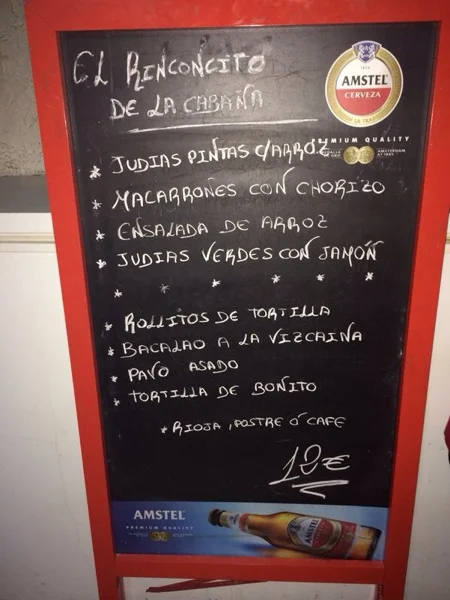 EL RINCONCITO
DE LA CABAÑA
AMSTEL
CERVEZA
PREMIUM QUALITY
* JUDIAS PINTAS C/ARROZ
* MACARROÑES CON CHORIZO
* ENSALADA DE ARROZ
* JUDIAS VERDES CON JAMÓÑ
* * * * * *
* ROLLITOS DE TORTILLA
* BACALAO A LA VIZCAINA
* PAVO ASADO
* TORTILLA DE BONITO
* RIOJA, POSTRE Ó CAFE
12€
AMSTEL
PREMIUM QUALITY
AMSTEL